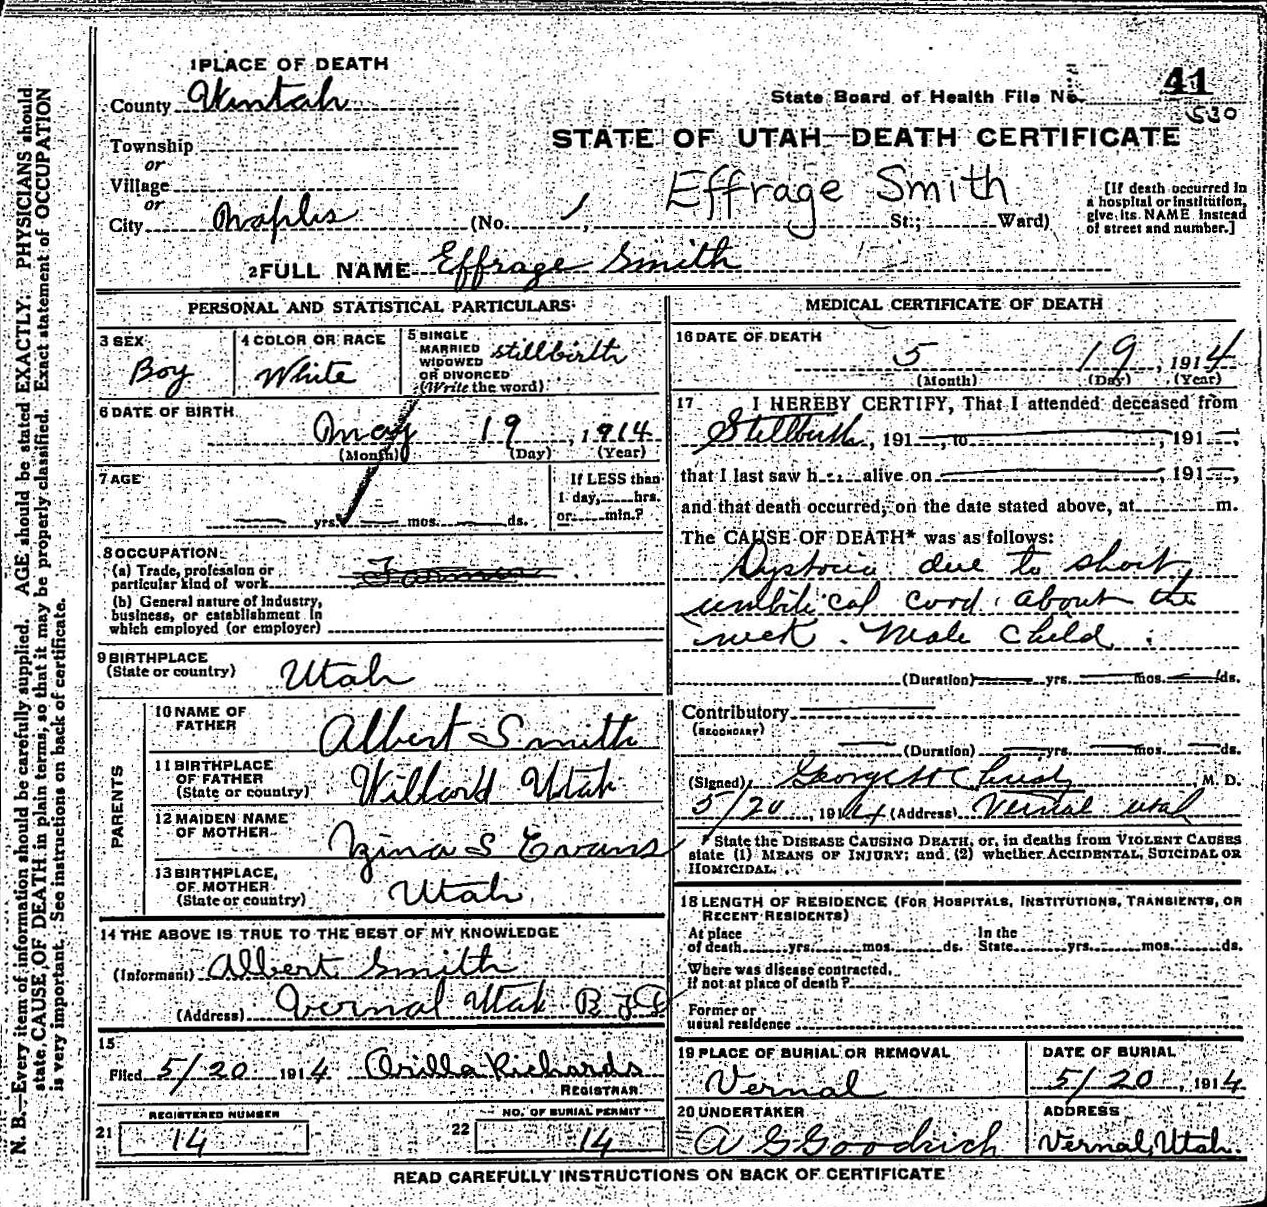 N. B.—Every item of information should be carefully supplied. AGE should be stated EXACTLY. PHYSICIANS should
state CAUSE OF DEATH in plain terms, so that it may be properly classified. Exact statement of OCCUPATION
is very important. See instructions on back of certificate.
1 PLACE OF DEATH
County Uintah
State Board of Health File No. 41
530
Township
or
Village
or
City Naples (No. St.; Ward)
STATE OF UTAH—DEATH CERTIFICATE
Effrage Smith
[If death occurred in
a hospital or institution,
give its NAME instead
of street and number.]
2 FULL NAME Effrage Smith
PERSONAL AND STATISTICAL PARTICULARS
3 SEX
Boy
4 COLOR OR RACE
White
5 SINGLE
MARRIED
WIDOWED
OR DIVORCED
(Write the word)
stillbirth
6 DATE OF BIRTH
May 19, 1914
(Month) (Day) (Year)
7 AGE
yrs. mos. ds.
If LESS than
1 day, hrs.
or min.?
8 OCCUPATION
(a) Trade, profession or
particular kind of work Farmer
(b) General nature of industry,
business, or establishment in
which employed (or employer)
9 BIRTHPLACE
(State or country) Utah
PARENTS
10 NAME OF
FATHER Albert Smith
11 BIRTHPLACE
OF FATHER
(State or country) Willard Utah
12 MAIDEN NAME
OF MOTHER Zina S Evans
13 BIRTHPLACE
OF MOTHER
(State or country) Utah
14 THE ABOVE IS TRUE TO THE BEST OF MY KNOWLEDGE
(Informant) Albert Smith
(Address) Vernal Utah
15
Filed 5/20 1914 Orilla Richards
REGISTRAR
REGISTERED NUMBER
21 14
NO. OF BURIAL PERMIT
22 14
MEDICAL CERTIFICATE OF DEATH
16 DATE OF DEATH
5 19, 1914
(Month) (Day) (Year)
17 I HEREBY CERTIFY, That I attended deceased from
Stillbirth, 191 , to , 191 ,
that I last saw h alive on , 191 ,
and that death occurred, on the date stated above, at m.
The CAUSE OF DEATH* was as follows:
Dystocia due to short
umbilical cord about the
neck. Male child.
(Duration) yrs. mos. ds.
Contributory
(SECONDARY)
(Duration) yrs. mos. ds.
(Signed) George H M. D.
5/20, 1914 (Address) Vernal Utah
* State the DISEASE CAUSING DEATH, or, in deaths from VIOLENT CAUSES
state (1) MEANS OF INJURY; and (2) whether ACCIDENTAL, SUICIDAL OR
HOMICIDAL.
18 LENGTH OF RESIDENCE (FOR HOSPITALS, INSTITUTIONS, TRANSIENTS, OR
RECENT RESIDENTS)
At place
of death yrs. mos. ds.
In the
State yrs. mos. ds.
Where was disease contracted,
if not at place of death?
Former or
usual residence
19 PLACE OF BURIAL OR REMOVAL
Vernal
DATE OF BURIAL
5/20, 1914
20 UNDERTAKER
A G Goodrich
ADDRESS
Vernal, Utah.
READ CAREFULLY INSTRUCTIONS ON BACK OF CERTIFICATE